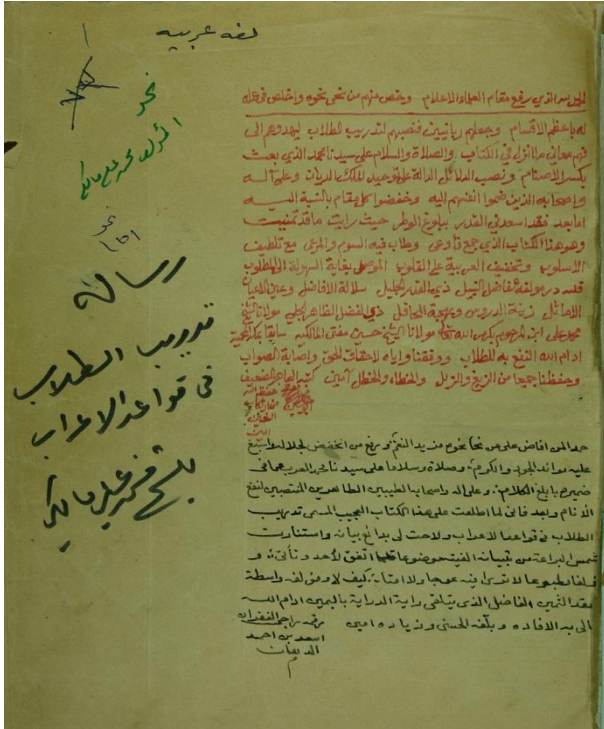 لغه عربيه
١
نحو
المؤلف محمد علي مالكي
نحو
رسالة
تدريب الطلاب
في قواعد الاعراب
للشيخ محمد علي مالكي
الحمد لله الذي رفع مقام العلماء الاعلام وخص منهم من نحى نحوه واخلص في عمله
له باعظم الاقسام وجعلهم ربانيين فنصبهم لتدريب الطلاب ليهدوهم الى
فهم معاني ما انزل في الكتاب والصلاة والسلام على سيدنا محمد الذي بعث
بكسر الاصنام ونصب الدلائل الدالة على توحيد الملك الديان وعلى آله
واصحابه الذين ضموا انفسهم اليه وخفضوا كل مقام بالنسبة اليه
اما بعد فقد اسعدني القدر ببلوغ الوطر حيث رايت ما قد تمنيت
وهو هذا الكتاب الذي جمع فاوعى وطاب فيه السوم والمرعى مع تلطيف
الاسلوب وتخفيف العربية على القلوب الموصل بغاية السهولة الى المطلوب
فلله در مؤلفه الفاضل النبيل ذي القدر الجليل سلالة الافاضل وعين اعيان
الاماثل زينة الدروس وبهجة المحافل ذي الفضل الظاهر الجلي مولانا الشيخ
محمد علي ابن المرحوم بكرم الله تعالى مولانا الشيخ حسين مفتي المالكية سابقا بمكة المحمية
ادام الله النفع به للطلاب ووفقنا واياه لاحقاق الحق واصابة الصواب
وحفظنا جميعا من الزيغ والزلل والخطاء والخطل آمين كتبه العاجز الضعيف
حمدا لمن افاض على من نحا نحوه مزيد النعم ورفع من انخفض لجلاله واسبغ
عليه موائد الجود والكرم وصلاة وسلاما على سيدنا محمد المعرب عما في
ضميره بابلغ الكلام وعلى اله واصحابه الطيبين الطاهرين المنتصبين لنفع
الانام وبعد فاني لما اطلعت على هذا الكتاب العجيب المسمى تدريب
الطلاب في قواعد الاعراب ولاحت لي بدائع بيانه واستنارت
شمس البراعة من تبيانه الفيته موضوعا قلما اتفق لأحد وتأتى و
لا ترى فيه عوجا ولا امتا كيف لا ومؤلفه واسطة
عقد الثمين الفاضل الذي يتلقى راية الدراية باليمين ادام الله
الى به الافاده وبلغه الحسنى وزياده امين
اسعد بن احمد
الدهان
م